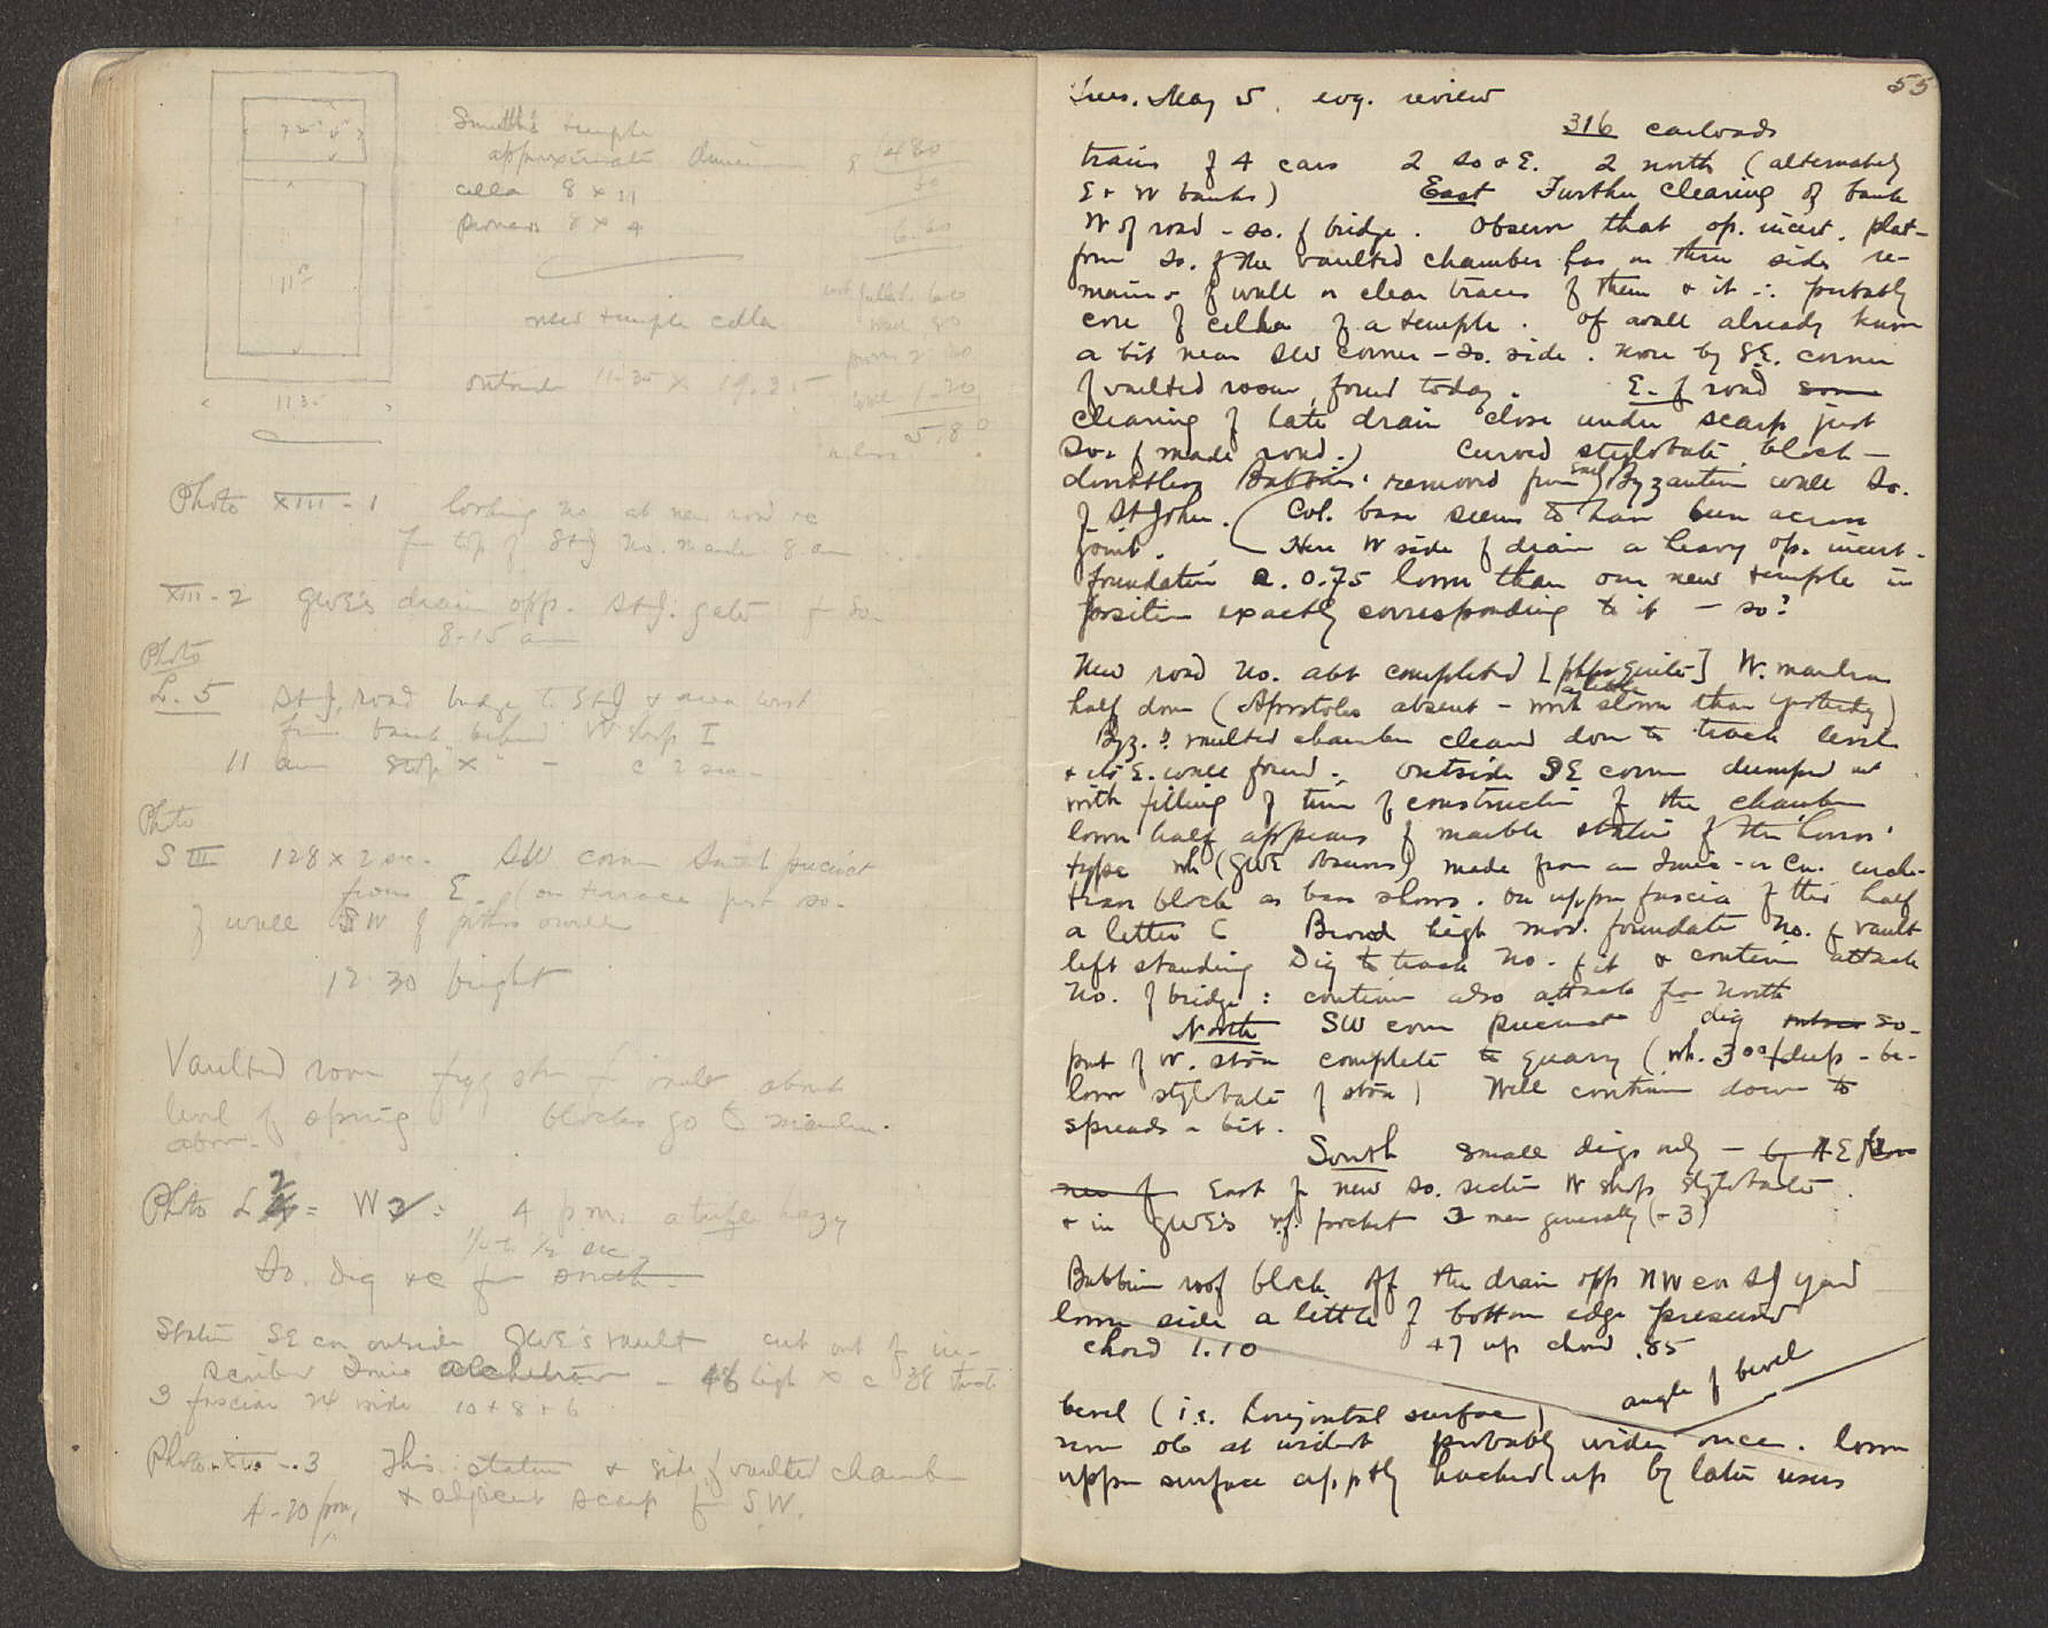 Smith's temple
approximate dimen
cella 8 x 11
pronaos 8 x 4
480
30
6.60
11
new temple cella
outside 11.35 x 19.35
1135
5.80
Photo XIII - 1 looking no. at new road &c
fr top of StJ no. 8 am
XIII - 2 GWE's drain opp. StJ. gate fr So.
8-15 am
Photo
L. 5 StJ. road bridge to StJ & area west
from bank behind W shop I
11 am stop x - c 2 sec -
Photo
S III 128 x 2 sec. SW corner Small precinct
from E. (on terrace just so.
of wall SW of
12.30 bright
Vaulted room fr vault about
level of spring blocks go to
above.
Photo L 2 = W 2 : 4 p.m. a trifle hazy
1/2 sec
So. dig &c fr south
Statue SE cor outside GWE's vault cut out of in-
scribed Ionic architrave - 46 high x c 38 thick
3 fasciae 24 wide 10 + 8 + 6
Photo. XIII. - 3 This statue & side of vaulted chamber
4-20 pm, & adjacent scarp fr S.W.
55
Tues. May 5. evg. review
316 carloads
trains of 4 cars 2 so & E. 2 north (alternately
E & W banks) East Further clearing of bank
W of road - so. of bridge. Observe that op. incert. plat-
form so. of the vaulted chamber has on three sides re-
mains of wall or clear traces of them & it ∴ probably
core of cella of a temple. Of wall already knew
a bit near SW corner - so. side. More by SE. corner
of vaulted room found today. E. of road some
clearing of late drain close under scarp just
So. of made road.) Curved stylobate block -
doubtless Babbius' removed from end of Byzantine wall So.
of St John. (Col. base seems to have been across
joint. Here W side of drain a heavy op. incert.
foundation c. 0.75 lower than our new temple in
position exactly corresponding to it - so?
New road no. abt completed [ quite] W. mandra
half down (Apostolos absent - work a little slower than yesterday)
Byz.? vaulted chamber cleared down to track level
& its E. wall found. Outside SE corner dumped out
with filling of time of construction of the chamber
lower half appears of marble statue of the 'horos'
type wh (GWE observes) made from an Ionic - or Cor. archi-
trave block as base shows. On upper fascia of this half
a letter C Broad high mod. foundatn no. of vault
left standing Dig to track no. of it & continue attack
no. of bridge : continue also attack from North
North SW corn precinct dig so-
part of W. stoa complete to quarry (wh. 3.00+ deep - be-
low stylobate of stoa) Well continue down to
spreads a bit.
South small digs only - by
new of East of new so. section W shops stylobate.
& in GWE's rf. pocket 3 men generally (- 3)
Babbius roof block off the drain opp NW cor StJ yard
lower side a little of bottom edge preserved
chord 1.10 47 up chord .85
angle of bevel
bevel (i.e. horizontal surface)
now 06 at widest probably wider once. Lower
upper surface apptly hacked up by later users